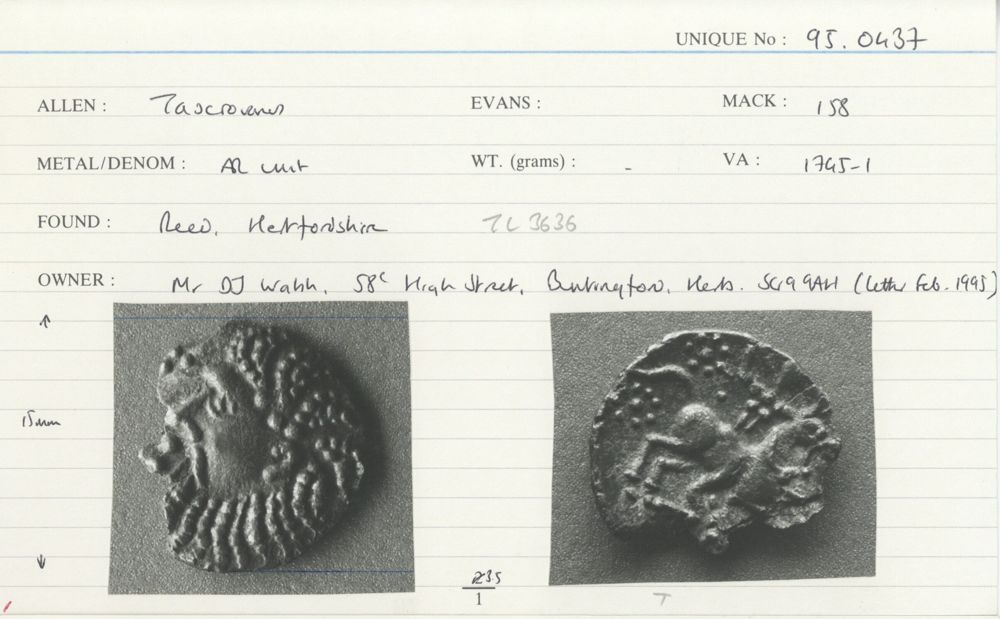 UNIQUE No : 95.0437
ALLEN : Tasciovanus EVANS : MACK : 158
METAL/DENOM : AR unit WT. (grams) : - VA : 1745-1
FOUND : Reed, Hertfordshire TL 3636
OWNER : Mr DJ 58c High Street, Buntingford, Herts. SG9 9AH (letter Feb. 1995)
15mm
235
1
T